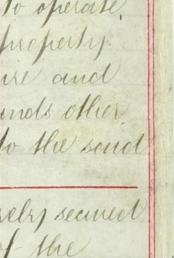 to operate,
property.
ire and
unds other
to the said
rely secured
of the